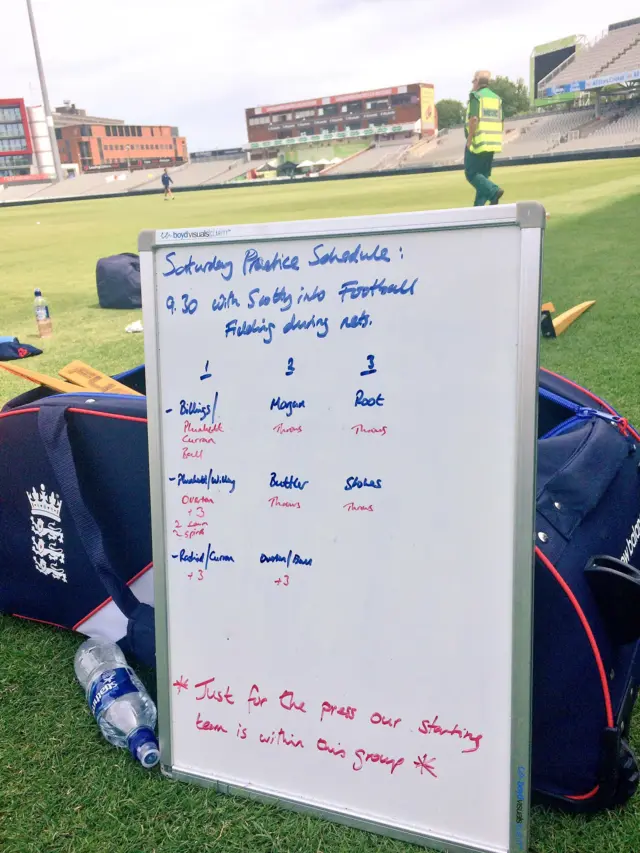 boydvisuals.com
Saturday Practice Schedule:
9.30 with Scotty into Football
Fielding during nets.
1 3 3
- Billings/ Morgan Root
Plunkett Throws Throws
Curran
Ball
- Plunkett/Willey Buttler Stokes
Overton Throws Throws
+3
2 seam
2 spin
- Rashid/Curran Overton/Ball
+3 +3
* Just for the press our starting
team is within this group *
boydvisuals